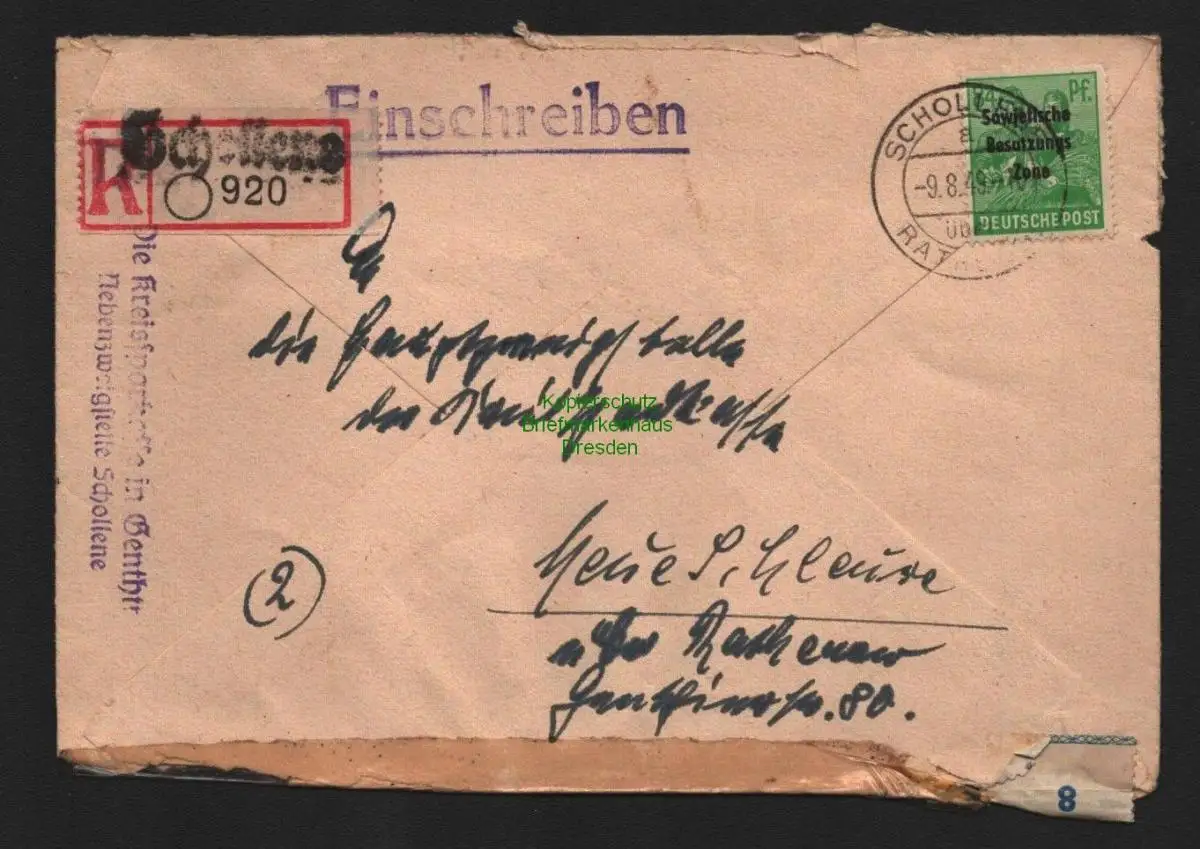 Einschreiben
R Schollene
920
SCHOLLENE
-9.8.49
ÜB
RATH
84 Pf.
Sowjetische
Besatzungs
Zone
DEUTSCHE POST
Die Kreissparkasse in Genthin
Nebenzweigstelle Schollene
An
die Hauptzweigstelle
der Kreissparkasse
Kopierschutz
Briefmarkenhaus
Dresden
Neue Schleuse
über Rathenow
Genthinerstr. 80.
(2)
8